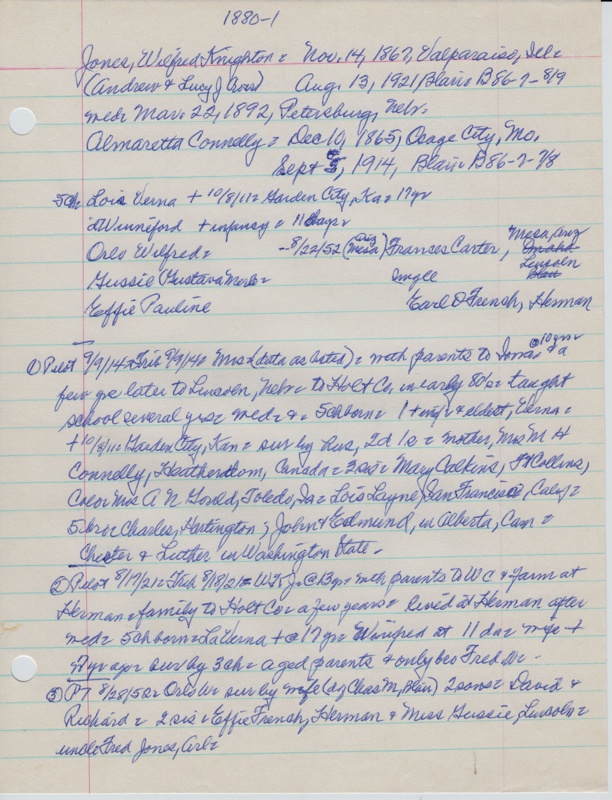 1880-1
Jones, Wilfred Knighton = Nov. 14, 1867, Valparaiso, Ill =
(Andrew & Lucy J Cross) Aug. 13, 1921, Blair B86-7-8/9
med = Mar. 22, 1892, Petersburg, Nebr.
Almaretta Connelly = Dec 10, 1865, Osage City, Mo.
Sept 5, 1914, Blair B86-7-7/8
5ch = Lois Verna + 10/8/11 = Garden City, Ka = 17yr
Winneford + infancy = 11 days =
Orlo Wilfred = - 8/22/52 (Mesa, Ariz) Frances Carter, Mesa, Ariz
Omaha
Lincoln
Gussie Gustava = single Blair
Effie Pauline Earl D French, Herman
① Pilot 9/9/14 = 9/9/14 = Mrs J (data as listed) = with parents to Iowa @ 10 yrs & a
few yrs later to Lincoln, Nebr = to Holt Co, in early 80s = taught
school several yrs = med = & = 5ch born = 1 + inf & eldest, Verna =
+ 10/8/11 = Garden City, Kan = sur by hus, 2d 1s = mother, Mrs M H
Connelly, Canada = 2 sis = Mary Calkins, Ft Collins,
Color Mrs A N Gould, Toledo, Ia = Lois Layne, San Francisco, Calif =
5 bro = Charles, Hartington; John & Edmund, in Alberta, Can =
Chester & Luther in Washington State -
② Pilot 8/17/21 = 8/18/21 = WKJ = @ 3yr = with parents to W C & farm at
Herman = family to Holt Co = a few years = lived at Herman after
med = 5ch born = LaVerna + @ 17 yr = Winifred at 11 da = wife +
7 yr ago = sur by 3ch = aged parents & only bro Fred W. -
③ PT 8/28/52 = Orlo W = sur by wife (d/ Chas M, Blair) 2 sons = David &
Richard = 2 sis = Effie French, Herman & Miss Gussie, Lincoln =
uncle Fred Jones, Arl =